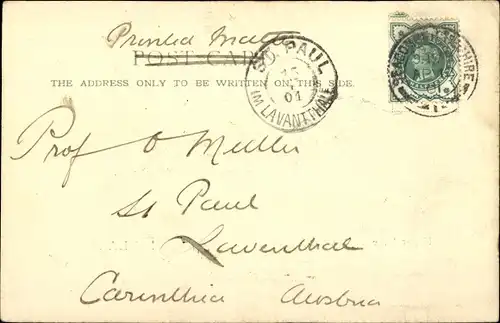 Printed Matter
POST CARD
THE ADDRESS ONLY TO BE WRITTEN ON THIS SIDE.
ST. PAUL
IM LAVANTTHALE
01
Prof O Muller
St Paul
Laventhal
Carinthia Austria